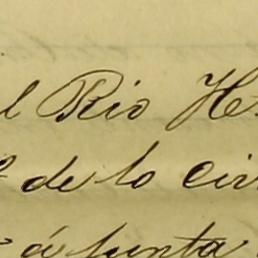 l Rio H
de lo civ
á junta